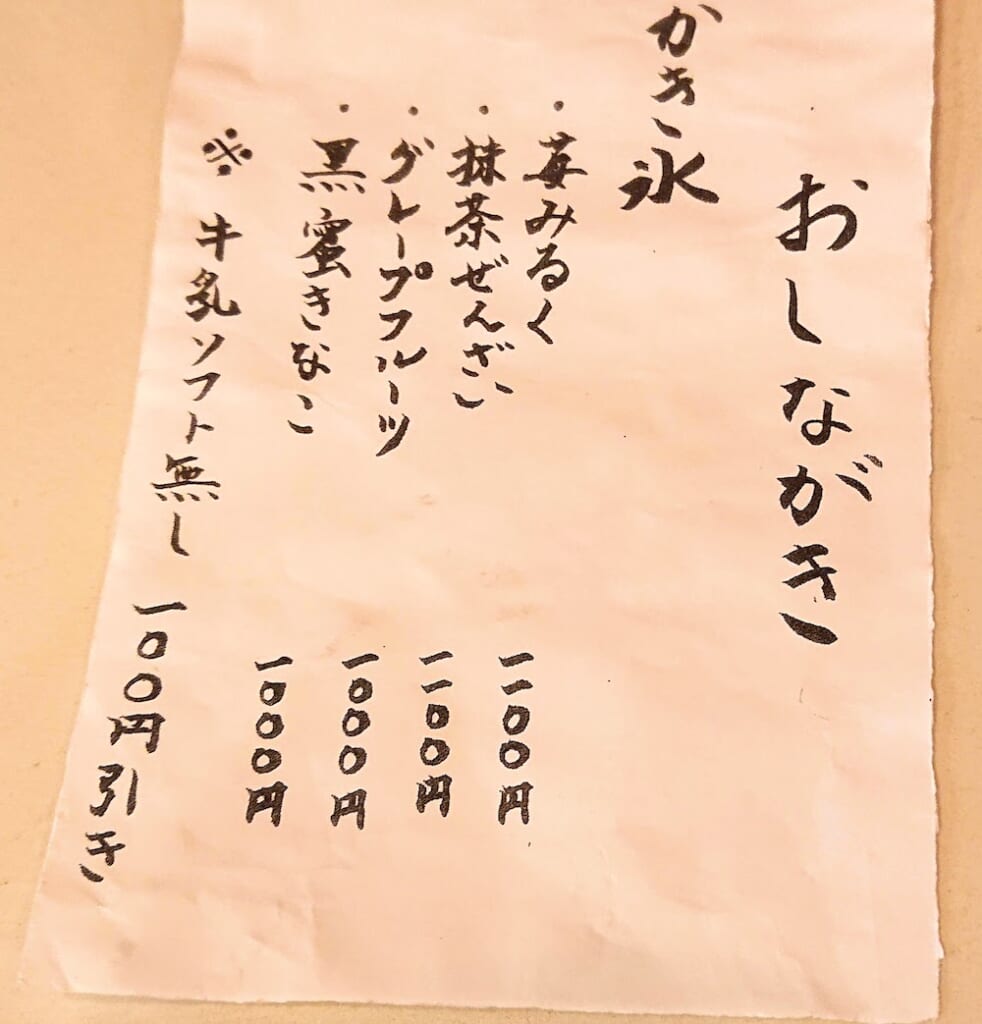 おしながき
かき永
・苺みるく 一一〇〇円
・抹茶ぜんざい 一一〇〇円
・グレープフルーツ 一〇〇〇円
・黒蜜きなこ 一〇〇〇円
※ 牛乳ソフト無し 一〇〇円引き